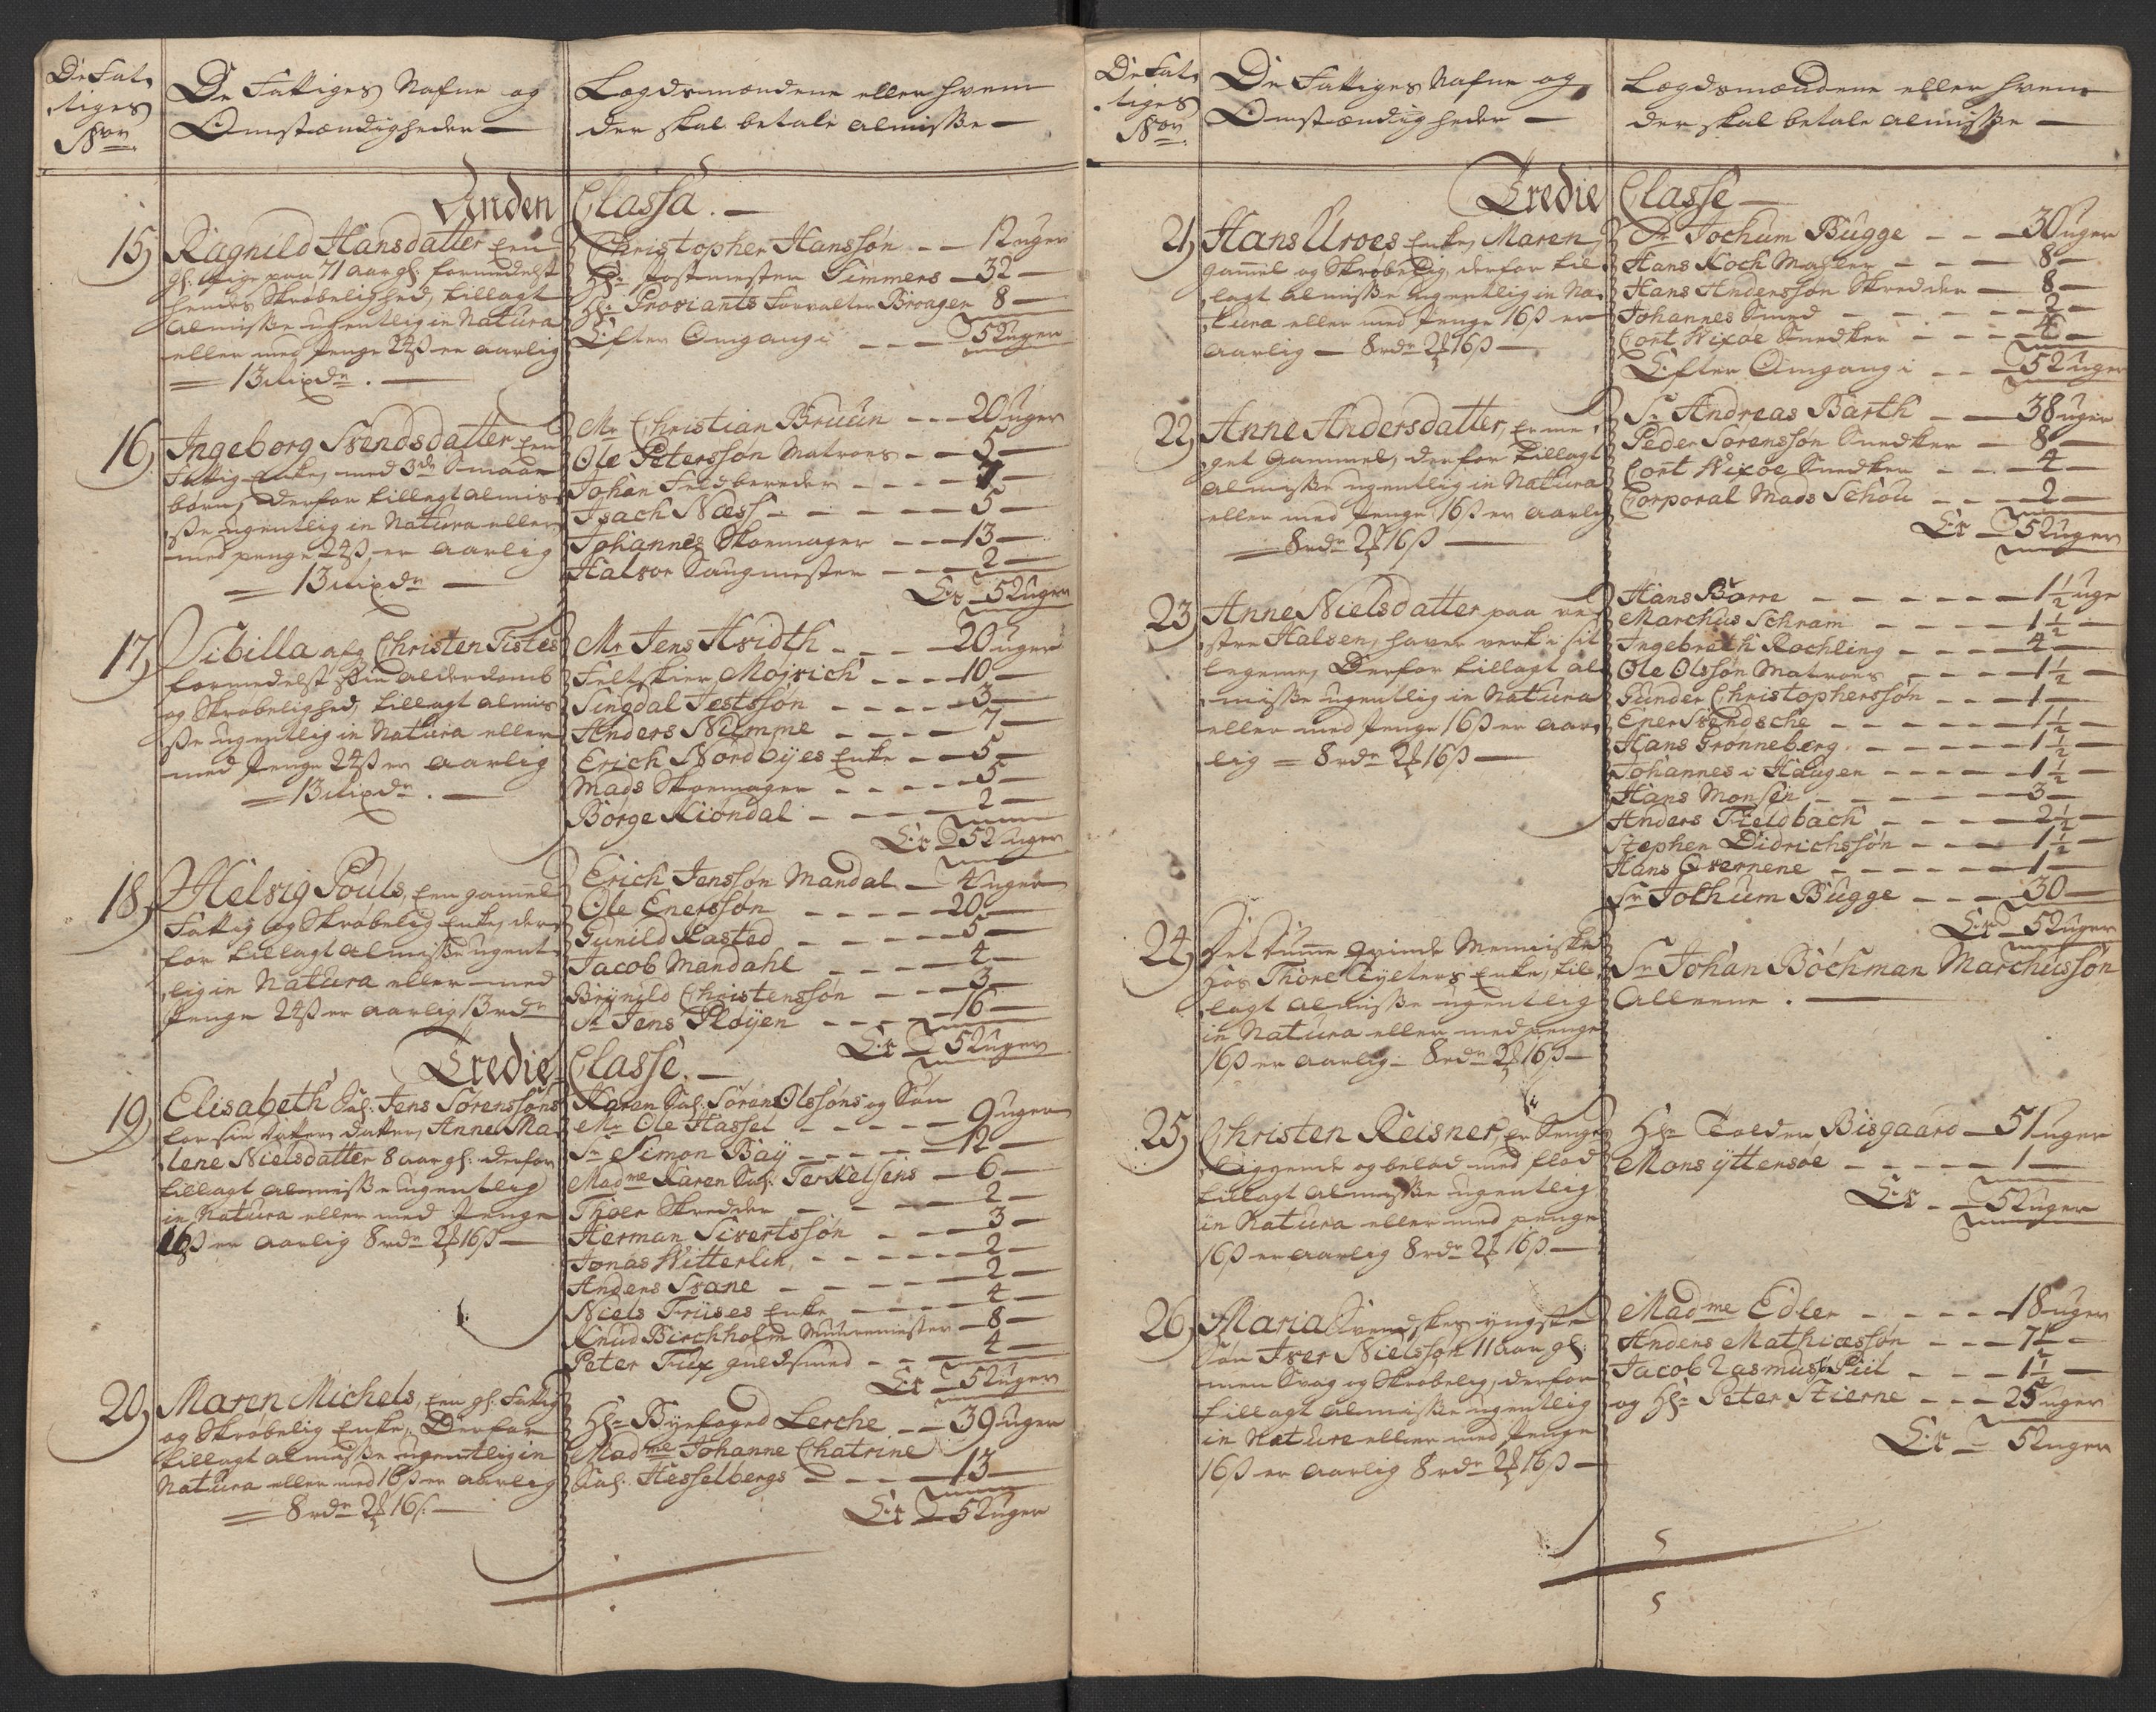 De Fat
tiges
Nor
De Fattiges Nafne og
Omstændigheder
Lægdsmændene eller hvem
der skal betale almisse
Anden Classa.
15) Ragnild Hansdatter Een
gl. Pige paa 71 aar gl: formedelst
hendes Skrøbelighed, tillagt
Almisse ugentlig in Natura
eller med Penge 24ß er aarlig
13 rixdr.
Christopher Hanssøn 12 uger
Hr: Postmester Simmers 32
Hr: Proviants Forvalter Broager 8
Efter Omgang i 52 uger
16) Ingeborg Svendsdatter Een
Fattig Enke, med 3de Smaae
børn, derfor tillagt almis
se ugentlig in Natura eller
med penge 24ß er aarlig
13 rixdr
Mr Christian Bruun 20 uger
Ole Peterssøn Matroes 5
Johan Feldbereder 7
Isach Næss 5
Johannes Skoemager 13
Halvor Saugmester 2
Er 52 uger
17) Sibilla afg Christen Tistes
formedelst Sin alderdomb
og Skrøbelighed, tillagt almis
se ugentlig in Natura eller
med Penge 24ß er aarlig
13 rixdr.
Mr Jens Hvidth 20 uger
Feltskier Mojrich 10
Singdal Jestssøn 3
Anders Nümme 7
Erich Nordbyes Enke 5
Mads Skoemager 5
Børge Kiøndal 2
Er 52 uger
18) Helvig Pouls, Een gammel
Fattig og Skrøbelig Enke, der
for tillagt almisse ugent
lig in Natura eller med
Penge 24ß er aarlig 13 rdr
Erich Jenssøn Mandal 4 uger
Ole Enerssøn 20
Gunild Kasted 5
Jacob Mandahl 4
Brynild Christenssøn 3
Sr Jens Pløyen 16
Er 52 uger
Tredie Classe.
19) Elisabeth Sal: Jens Sørenssøns
for sin datter datter, Anne Ma
lene Nielsdatter 8 aar gl: derfor
tillagt almisse ugentlig
in Natura eller med Penge
16ß er aarlig 8 rdr 2 16ß
Karen Sal: Søren Olssøns og Søn
Mr Ole Hassel 9 uger
Sr Simon Bay 12
Madme Karen Sal: Terkelsens 6
Thoer Skredder 2
Herman Sivertssøn 3
Jonas Witterlin 2
Anders Svane 2
Niels Friises Enke 4
Knud Birchholm Muurmester 8
Peter Fux guldsmed 4
Er 52 uger
20) Maren Michels, Een gl: Fattig
og Skrøbelig Enke, Derfor
tillagt almisse ugentlig in
Natura eller med 16ß er aarlig
8 rdr 2 16ß
Hr: Byefoged Lerche 39 uger
Madme Johanne Chatrine
Sal: Hesselbergs 13
Er 52 uger
De Fat
tiges
Nor
De Fattiges Nafne og
Omstændigheder
Lægdsmændene eller hvem
der skal betale almisse
Tredie Classe
21) Hans Uroes Enke, Maren
gammel og Skrøbelig, derfor til
lagt almisse ugentlig in Na
tura eller med Penge 16ß er
aarlig 8 rdr 2 16ß
Sr Jochum Bugge 30 uger
Hans Koch Mahler 8
Hans Anderssøn Skredder 8
Johannes Smed 2
Cort Wixøe Snedker 4
Efter Omgang i 52 uger
22) Anne Andersdatter, Er me
get Gammel, derfor tillagt
almisse ugentlig in Natura
eller med Penge 16ß er aarlig
8 rdr 2 16ß
Sr Andreas Barth 38 uger
Peder Sørenssøn Snedker 8
Cort Wixøe Snedker 4
Corporal Mads Schou 2
Er 52 uger
23) Anne Nielsdatter paa ve
stre Halsen, haver verk i sit
legeme, Derfor tillagt al
misse ugentlig in Natura
eller med Penge 16ß er aar
lig 8 rdr 2 16ß
Hans Børre 1½ uge
Marchus Schram 1½
Ingebreth Rochling 4
Ole Olssøn Matroes 1½
Gunder Christopherssøn 1
Ener Svendsche 1½
Hans Grønneberg 1½
Johannes i Haugen 1½
Hans Monsen 3
Anders Fieldbach 2½
Stephen Didrichssøn 1½
Hans Qvernene 1
Sr Jochum Bugge 30
Er 52 uger
24) Det dumme qvinde Menniske
hos Thore Tylters Enke, til
lagt almisse ugentlig
in Natura eller med penge
16ß er aarlig 8 rdr 2 16ß
Sr Johan Bochman Marchussøn
Alleene.
25) Christen Reisner, Er Senge
liggende og belad med flod
tillagt almisse ugentlig
in Natura eller med penge
16ß er aarlig 8 rdr 2 16ß
Hr: Tolder Bisgaard 51 uger
Mons ytterøe 1
Er 52 uger
26) Maria Svendskes yngste
Søn Iver Nielssøn 11 aar gl:
men Svag og Skrøbelig, derfor
tillagt almisse ugentlig
in Nature eller med Penge
16ß er aarlig 8 rdr 2 16ß
Madme Edler 18 uger
Anders Mathiæssøn 7½
Jacob Rasmuss: Piil 1½
og Hr: Peter Stierne 25 uger
Er 52 uger